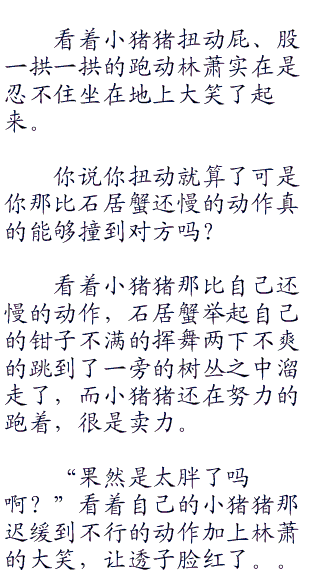 看着小猪猪扭动屁、股
一拱一拱的跑动林萧实在是
忍不住坐在地上大笑了起
来。
你说你扭动就算了可是
你那比石居蟹还慢的动作真
的能够撞到对方吗？
看着小猪猪那比自己还
慢的动作，石居蟹举起自己
的钳子不满的挥舞两下不爽
的跳到了一旁的树丛之中溜
走了，而小猪猪还在努力的
跑着，很是卖力。
“果然是太胖了吗
啊？”看着自己的小猪猪那
迟缓到不行的动作加上林萧
的大笑，让透子脸红了。。